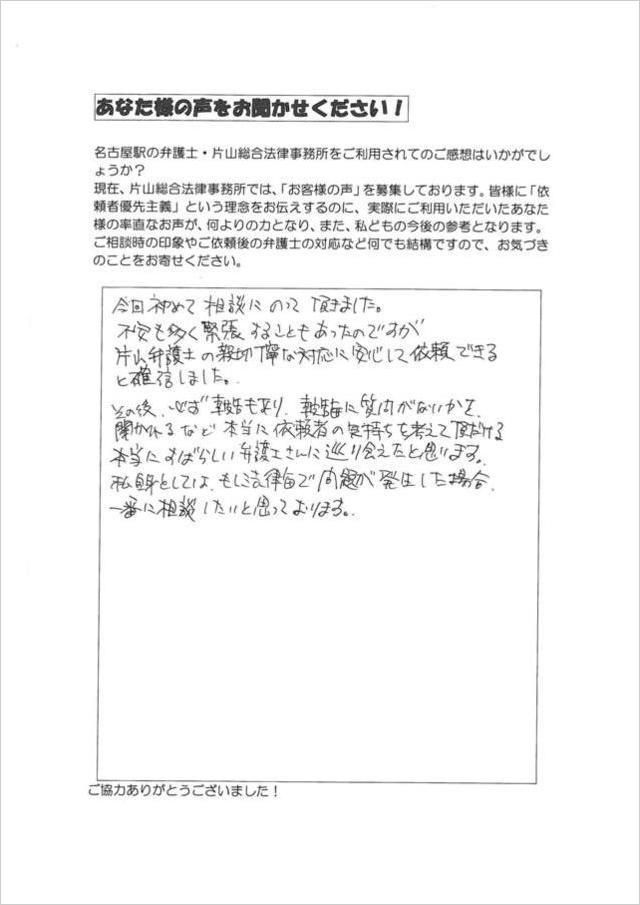 あなた様の声をお聞かせください！
名古屋駅の弁護士・片山総合法律事務所をご利用されてのご感想はいかがでし
ょうか？
現在、片山総合法律事務所では、「お客様の声」を募集しております。皆様に「依
頼者優先主義」という理念をお伝えするのに、実際にご利用いただいたあなた
様の率直なお声が、何よりの力となり、また、私どもの今後の参考となります。
ご相談時の印象やご依頼後の弁護士の対応など何でも結構ですので、お気づき
のことをお寄せください。
今回初めて相談にのって頂きました。
不安も多く緊張することもあったのですが
片山弁護士の親切丁寧な対応に安心して依頼できる
と確信しました。
その後、必ず報告もあり、報告毎に質問がないかを
聞かれるなど本当に依頼者の気持ちを考えて頂だける
本当にすばらしい弁護士さんに巡り会えたと思います。
私自身としては、もし法律面で問題が発生した場合、
一番に相談したいと思っております。
ご協力ありがとうございました！